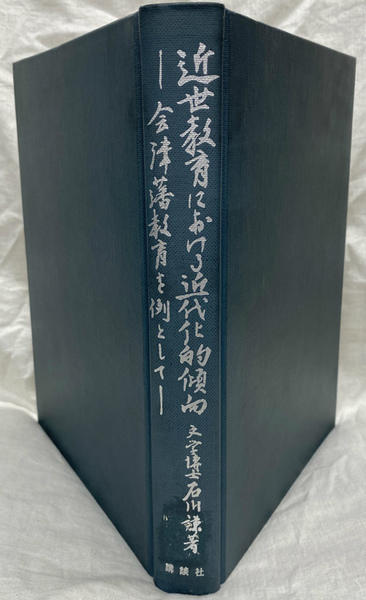 近世教育における近代化的傾向
―会津藩教育を例として―
文学博士 石川謙著
講談社